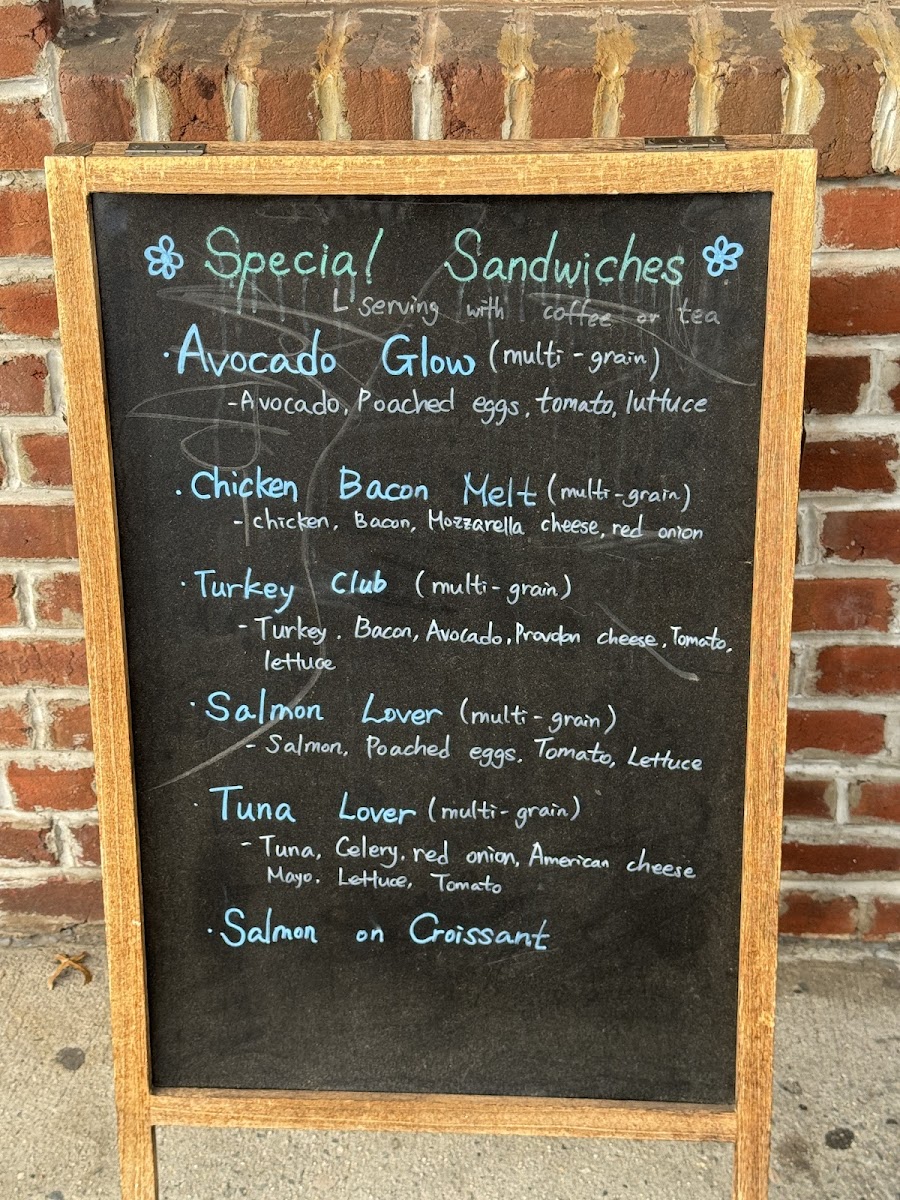 Special Sandwiches
L serving with coffee or tea
· Avocado Glow (multi-grain)
- Avocado, Poached eggs, tomato, luttuce
· Chicken Bacon Melt (multi-grain)
- chicken, Bacon, Mozzarella cheese, red onion
· Turkey Club (multi-grain)
- Turkey. Bacon, Avocado, Pravdon cheese, Tomato,
lettuce
· Salmon Lover (multi-grain)
- Salmon, Poached eggs, Tomato, Lettuce
· Tuna Lover (multi-grain)
- Tuna, Celery, red onion, American cheese
Mayo. Lettuce, Tomato
· Salmon on Croissant